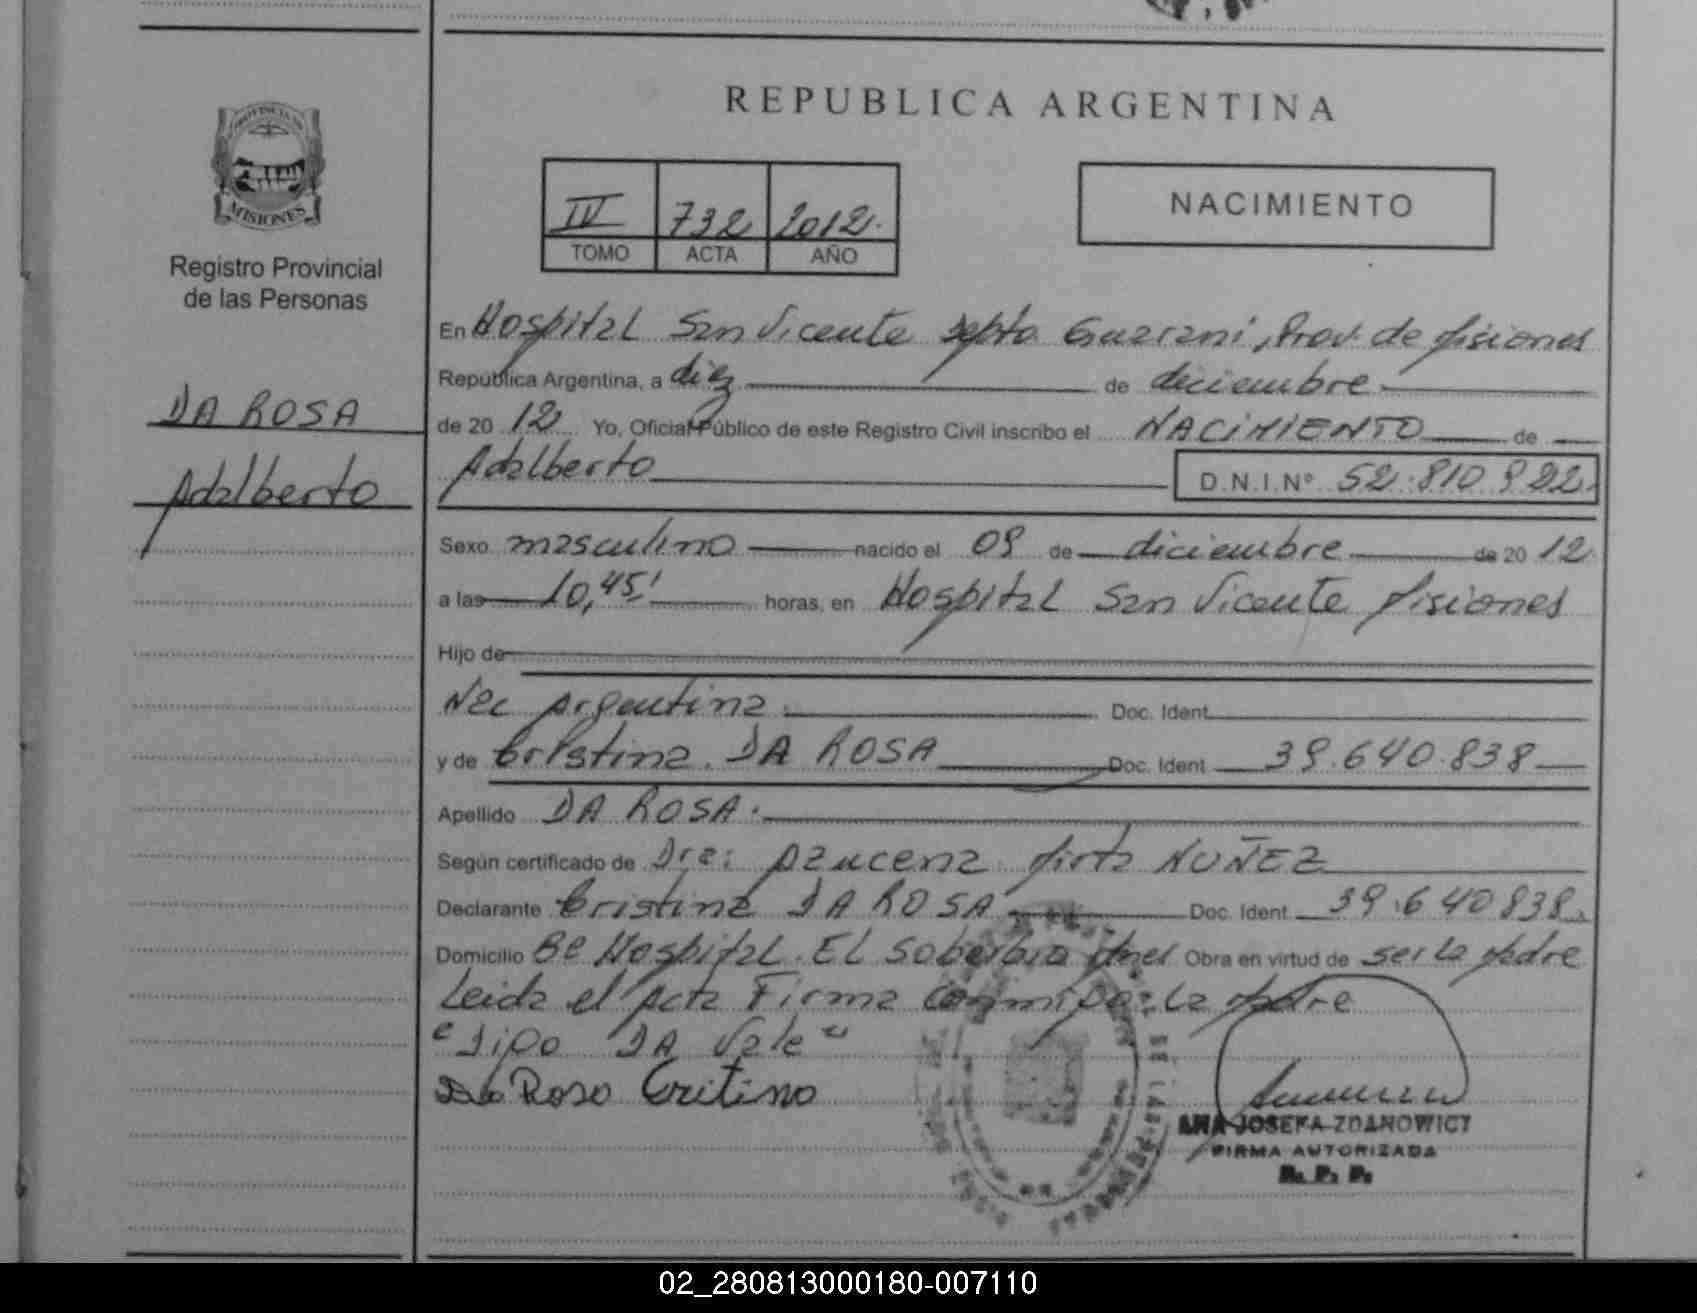 REPUBLICA ARGENTINA
PROVINCIA DE
MISIONES
Registro Provincial
de las Personas
DA ROSA
Adalberto
IV 732 2012.
TOMO ACTA AÑO
NACIMIENTO
En Hospital San Vicente Depto Guarani, Prov. de Misiones
República Argentina, a diez de diciembre
de 2012 Yo, Oficial Público de este Registro Civil inscribo el NACIMIENTO de
Adalberto D.N.I.Nº 52.810.922.
Sexo masculino nacido el 09 de diciembre de 2012
a las 10,45' horas, en Hospital San Vicente Misiones
Hijo de
Nac Argentina. Doc. Ident.
y de Cristina. DA ROSA Doc. Ident 39.640.838
Apellido DA ROSA.
Según certificado de Dra: Azucena Mirta NUÑEZ
Declarante Cristina DA ROSA Doc. Ident 39.640838.
Domicilio Bº Hospital. EL Soberbio Mnes Obra en virtud de ser la Madre
Leida el Acta Firma conmigo: La Madre
"Digo DA Vale"
Da Rosa Critina
ANA JOSEFA ZDANOWICT
FIRMA AUTORIZADA
R. P. P.
02_280813000180-007110